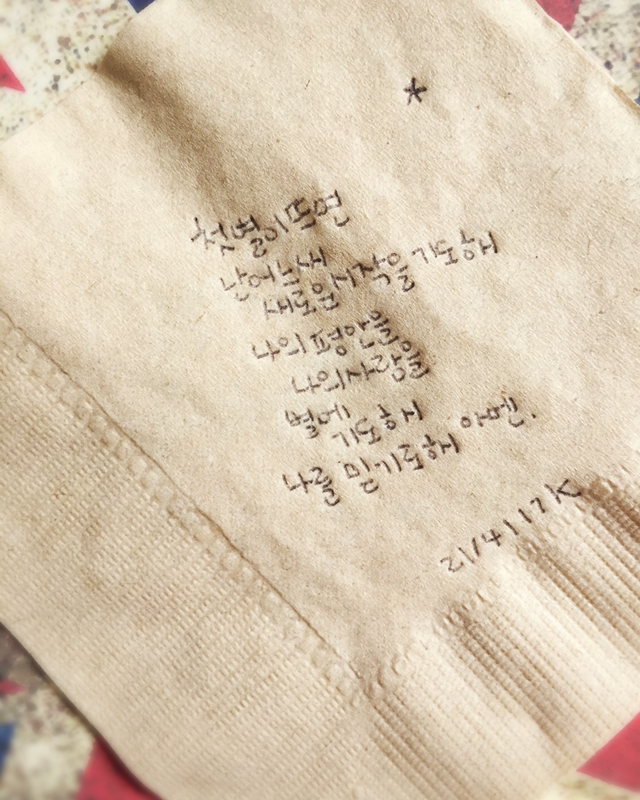 *
첫 별이 뜨면
난 어느새
새로운 시작을 기도하게
나의 평안을
나의 사람을
별에게
기도하게
나를 믿기로하게 아멘.